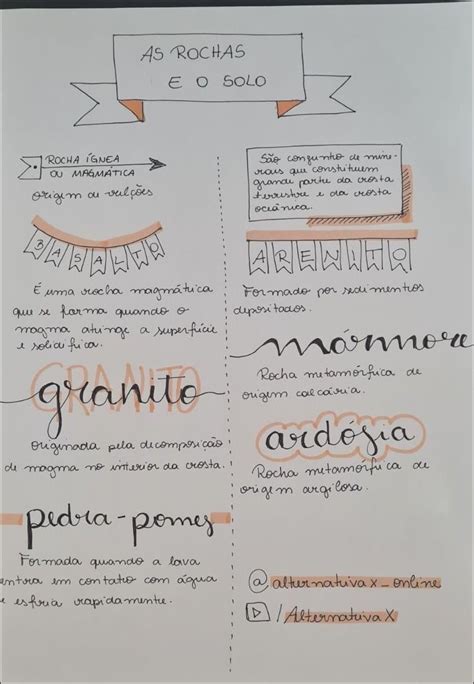 AS ROCHAS
E O SOLO
ROCHA ÍGNEA
OU MAGMÁTICA
origem de vulcões
BASALTO
É uma rocha magmática
que se forma quando o
magma atinge a superfície
e solidifica.
GRANITO
granito
originada pela decomposição
de magma no interior da crosta.
pedra-pomes
Formada quando a lava
entra em contato com água
e esfria rapidamente.
São conjunto de mine-
rais que constituem
grande parte da crosta
terrestre e da crosta
oceânica.
ARENITO
Formado por sedimentos
depositados.
mármore
Rocha metamórfica de
origem calcária.
ardósia
Rocha metamórfica de
origem argilosa.
@alternativax_online
/AlternativaX